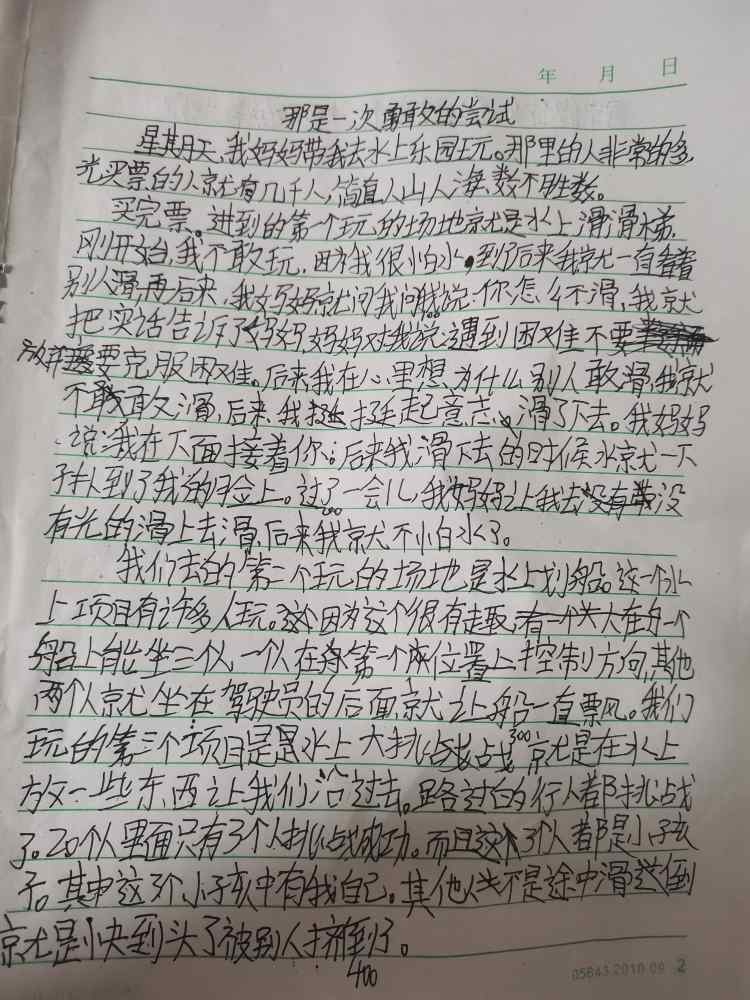 年 月 日
那是一次勇敢的尝试
星期天,我妈妈带我去水上乐园玩。那里的人非常的多,
光买票的人就有几千人,简直人山人海,数不胜数。
买完票。进到的第一个玩的场地就是水上滑滑梯,
刚开始,我不敢玩,因为我很怕水,到了后来我就一直看着
别人滑,再后来,我妈妈就问我问我说:你怎么不滑,我就
把实话告诉了妈妈,妈妈对我说:遇到困难不要
放弃要克服困难。后来,我在心里想,为什么别人敢滑,我就
不敢敢滑,后来,我挺挺起意志,滑了下去。我妈妈
说:我在下面接着你。后来我滑下去的时候水就一下
扑到了我的脸上。过了一会儿,我妈妈让我去没有带没
有光的滑上去滑,后来我就不怕水了。
我们去的第二个玩的场地是水上划船。这一个水
上项目有许多人玩。这因为这个很有趣,有一个大在每一个
船上能坐三个人,一个人在第一个位置上控制方向,其他
两个人就坐在驾驶员的后面,就让船一直票风。我们
玩的第三个项目是是水上大挑战战300就是在水上
放一些东西让我们沿过去。路过的行人都挑战
了。20个人里面只有3个人挑战成功。而且这个3个人都是小孩
子。其中这3个小孩中有我自己。其他人不是途中滑送倒
就是快到头了被别人挤到了。
400
05643 2010 09 2